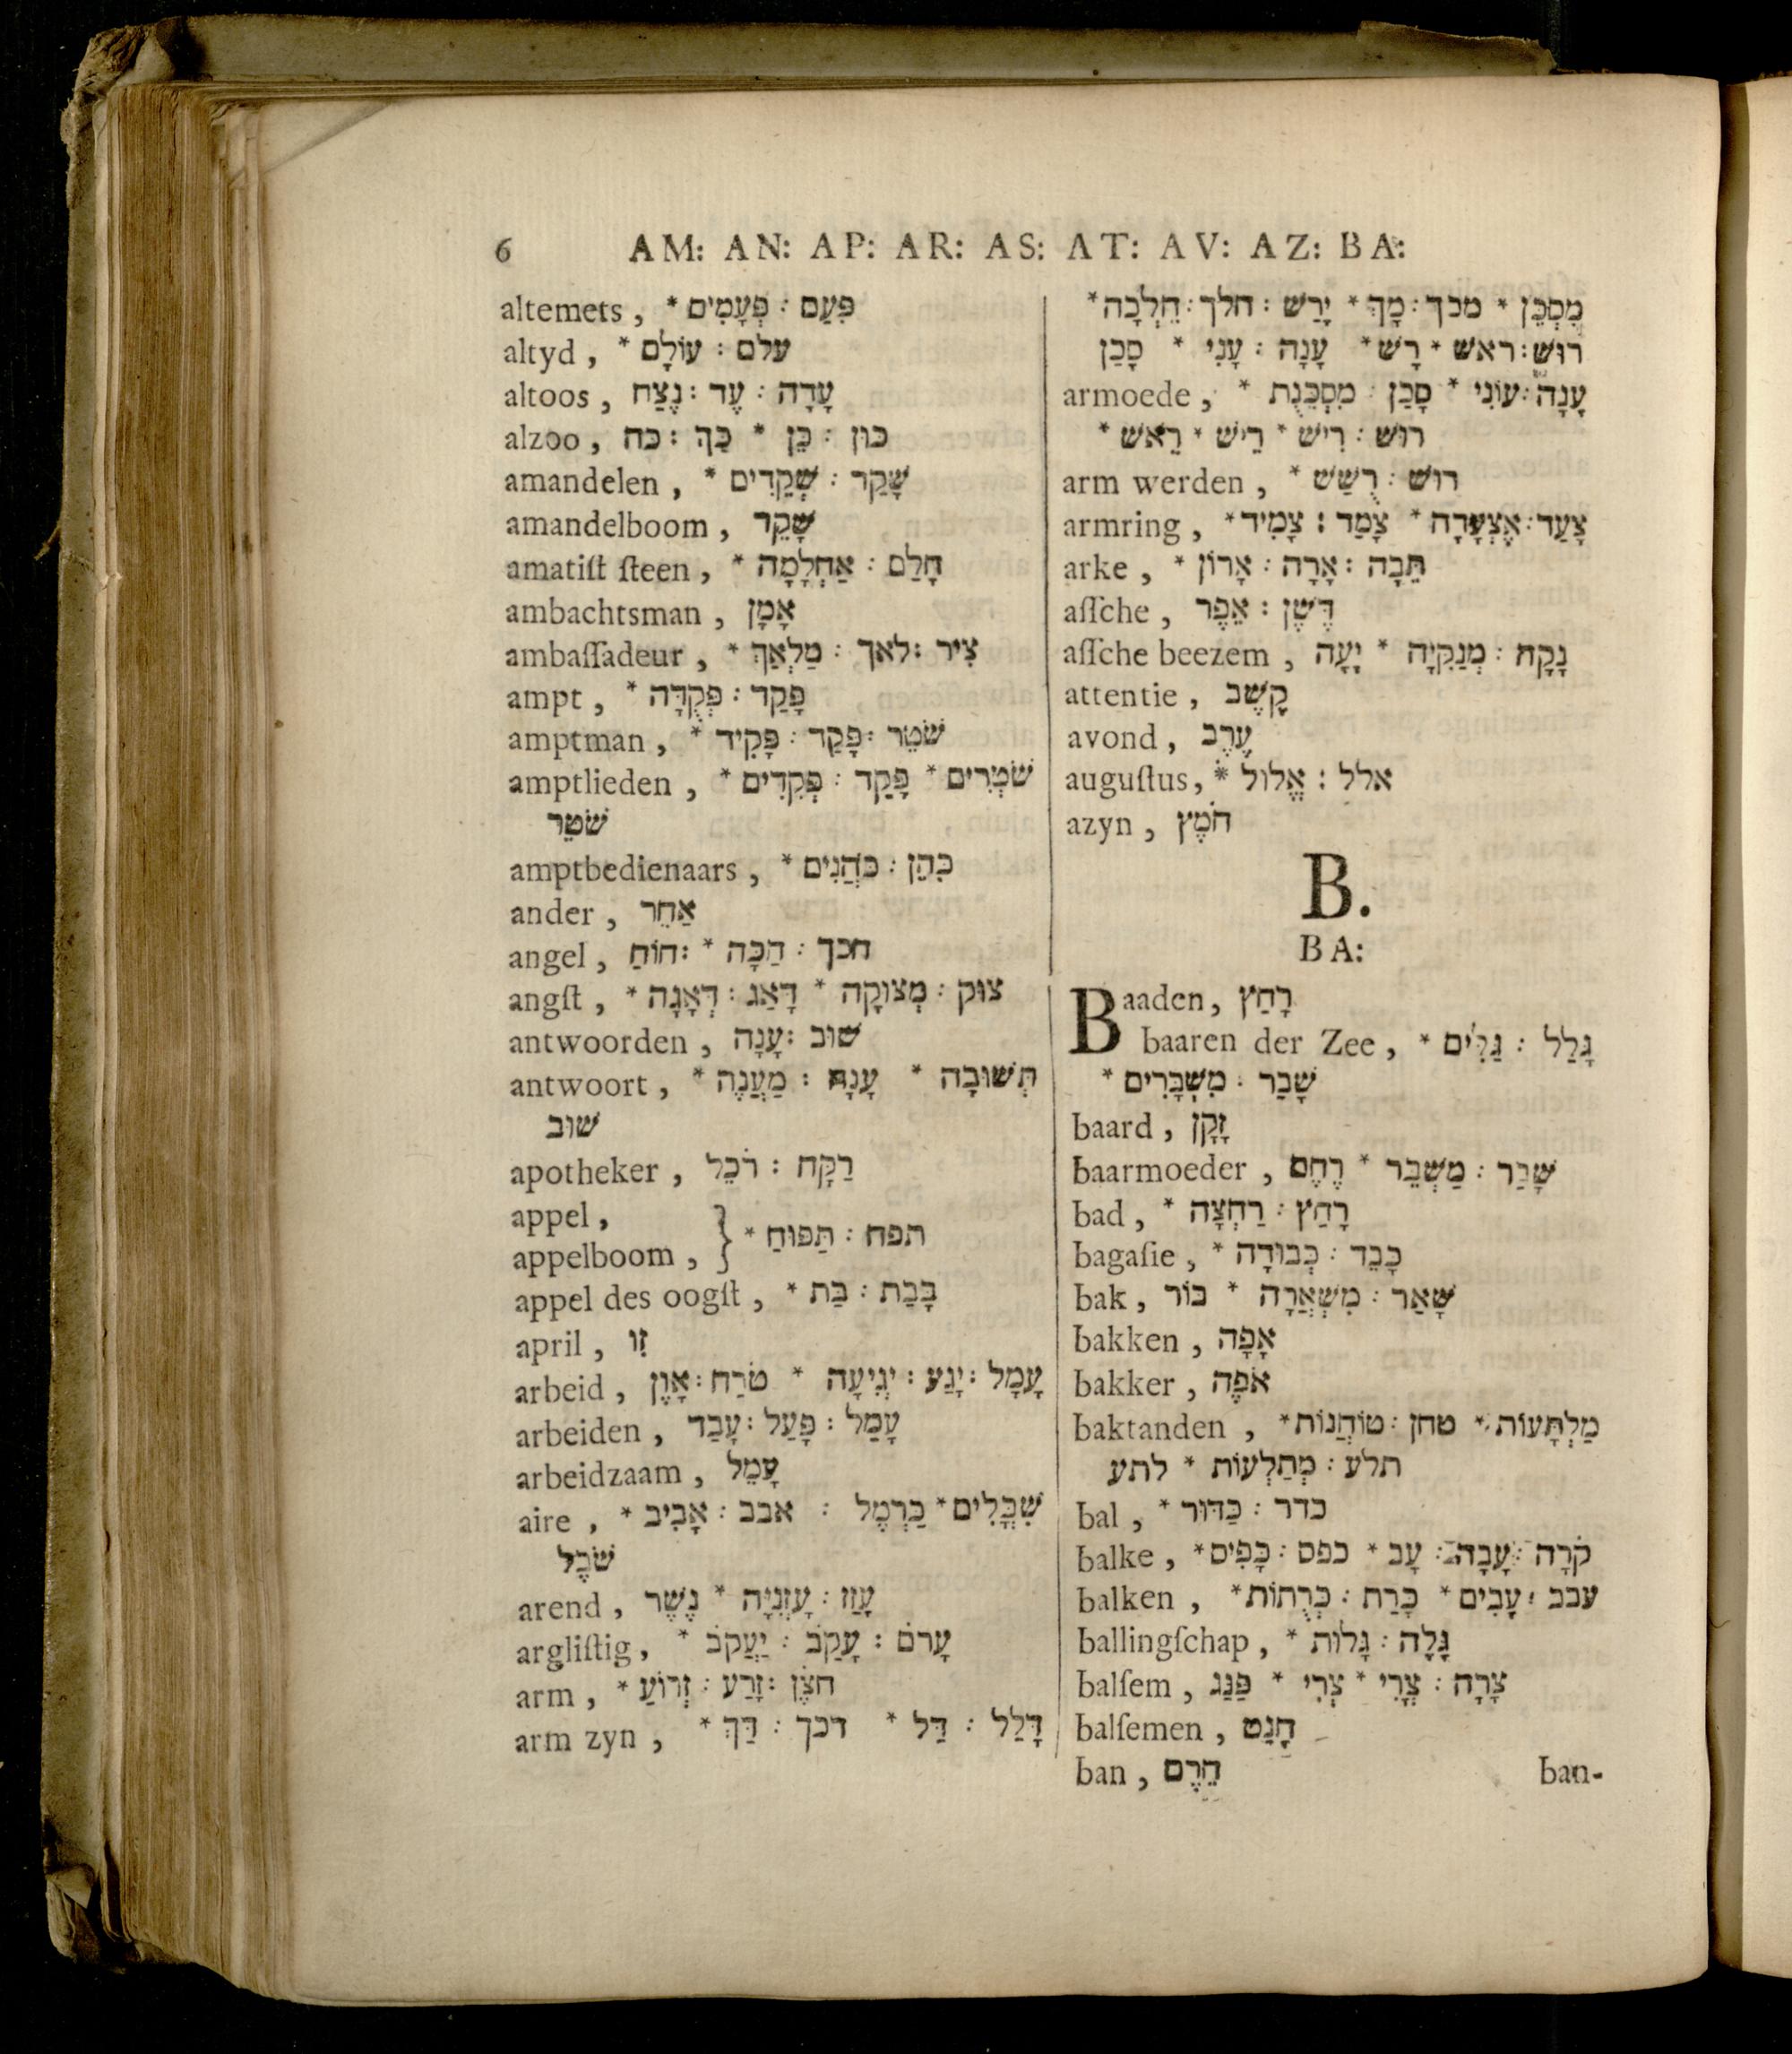 6 AM: AN: AP: AR: AS: AT: AV: AZ: BA:
altemets, פַּעַם : פְּעָמִים *
altyd, עלם : עוֹלָם *
altoos, עָדָה : עֶד : נֶצַח
alzoo, כון : כֵּן * כַּךְ : כח
amandelen, שָׁקַר : שְׁקֵדִים *
amandelboom, שָׁקֵד
amatiſt ſteen, חָלַם : אַחְלָמָה *
ambachtsman, אָמָן
ambaſſadeur, צִיר : לאך : מַלְאַךְ *
ampt, פָּקַד : פְּקֻדָּה *
amptman, שֹׁטֵר : פָּקַד : פָּקִיד *
amptlieden, שֹׁטְרִים * פָּקַד : פְּקִדִים *
שֹׁטֵר
amptbedienaars, כֹּהֵן : כֹּהֲנִים *
ander, אַחֵר
angel, חכך : חַכָּה * : חוֹחַ
angſt, צוּק : מְצוּקָה * דָּאַג : דְּאָגָה *
antwoorden, שׁוּב : עָנָה
antwoort, תְּשׁוּבָה * עָנָה : מַעֲנֶה *
שׁוּב
apotheker, רַקָּח : רֹכֵל
appel,
appelboom, } תפח : תַּפּוּחַ *
appel des oogſt, בָּבַת : בַּת *
april, זִו
arbeid, עָמָל : יָגַע : יְגִיעָה * טֹרַח : אָוֶן
arbeiden, עָמַל : פָּעַל : עָבַד
arbeidzaam, עָמֵל
aire, שִׁבֳּלִים * כַּרְמֶל : אבב : אָבִיב *
שֹׁבֶל
arend, עָזַז : עָזְנִיָּה * נֶשֶׁר
argliſtig, עָרֹם : עָקֹב : יַעֲקֹב *
arm, חֹצֶן : זָרַע : זְרוֹעַ *
arm zyn, דָּלַל : דַּל * דכך : דַּךְ *
מִסְכֵּן * מכך : מָךְ * יָרַשׁ : חלך : חֵלְכָה *
רוּשׁ : ראשׁ * רָשׁ * עָנָה : עָנִי * סָכַן
armoede, עָנָה : עוֹנִי * סָכַן : מִסְכֵּנֻת *
רוּשׁ : רִישׁ * רֵישׁ * רֵאשׁ *
arm werden, רוּשׁ : רֻשַּׁשׁ *
armring, צָעַד : אֶצְעָדָה * צָמַד : צָמִיד *
arke, תֵּבָה : אָרָה : אָרוֹן *
aſſche, דֶּשֶׁן : אֵפֶר
aſſche beezem, נָקָה : מְנַקִּיָּה * יָעָה
attentie, קֶשֶׁב
avond, עֶרֶב
auguſtus, אלל : אֱלוּל *
azyn, חֹמֶץ
B.
BA:
Baaden, רָחַץ
baaren der Zee, גָּלַל : גַּלִּים *
שָׁבַר : מִשְׁבָּרִים *
baard, זָקָן
baarmoeder, שָׁבַר : מַשְׁבֵּר * רֶחֶם
bad, רָחַץ : רַחְצָה *
bagaſie, כָּבֵד : כְּבוּדָּה *
bak, שָׁאַר : מִשְׁאֶרָה * בּוֹר
bakken, אָפָה
bakker, אֹפֶה
baktanden, מַלְתָּעוֹת * טחן : טוֹחֲנוֹת *
תלע : מְתַלְּעוֹת * לתע
bal, כדר : כַּדּוּר *
balke, קֹרָה : עָבָה : עָב * כפס : כָּפִים *
balken, עבב : עָבִים * כָּרַת : כְּרֻתוֹת *
ballingſchap, גָּלָה : גָּלוּת *
balſem, צָרָה : צֳרִי * צְרִי * פַּנַּג
balſemen, חָנַט
ban, חֵרֶם
ban-